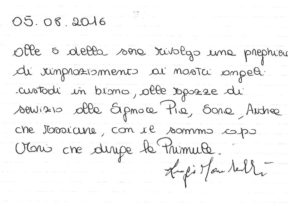 05.08.2016
alle 5 della sera rivolgo una preghiera
di ringraziamento ai nostri angeli
custodi in bianco, alle ragazze di
servizio alla Signora Pia, Sara, Andrea
che rossicane, con il sommo capo
che dirige la Primula.